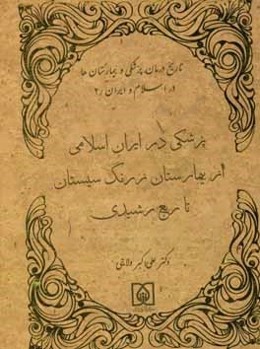 تاریخ درمان پزشکی و بیمارستان ها
در اسلام و ایران ۲
پزشکی در ایران اسلامی
از بیمارستان زرنگ سیستان
تا ربع رشیدی
دکتر علی اکبر ولایتی